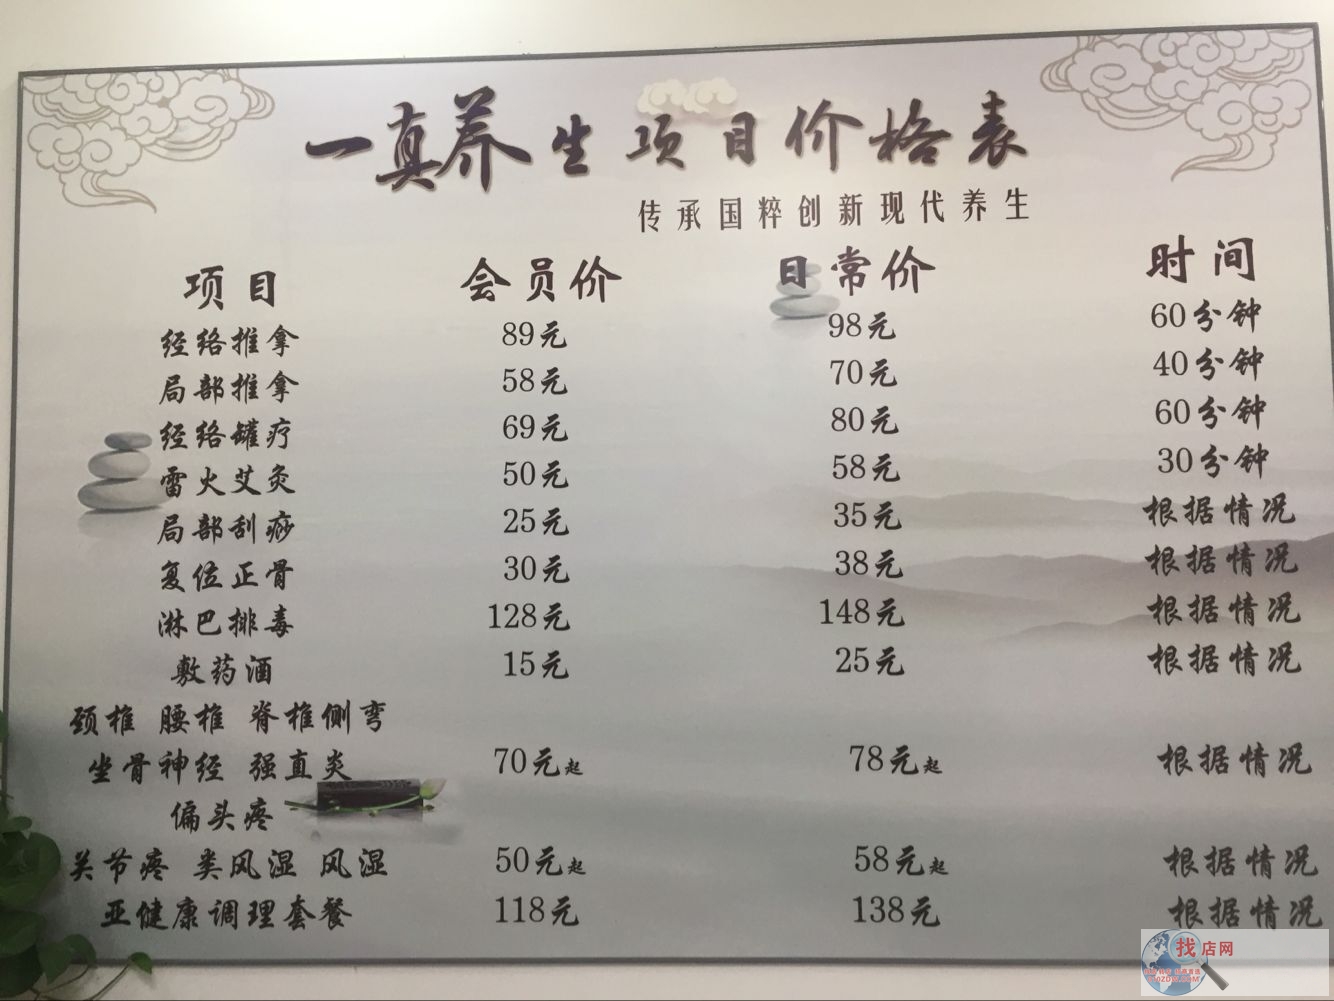 一真养生项目价格表
传承国粹创新现代养生
项目 会员价 日常价 时间
经络推拿 89元 98元 60分钟
局部推拿 58元 70元 40分钟
经络罐疗 69元 80元 60分钟
雷火艾灸 50元 58元 30分钟
局部刮痧 25元 35元 根据情况
复位正骨 30元 38元 根据情况
淋巴排毒 128元 148元 根据情况
敷药酒 15元 25元 根据情况
颈椎 腰椎 脊椎侧弯
坐骨神经 强直炎 70元起 78元起 根据情况
偏头疼
关节疼 类风湿 风湿 50元起 58元起 根据情况
亚健康调理套餐 118元 138元 根据情况
找店网